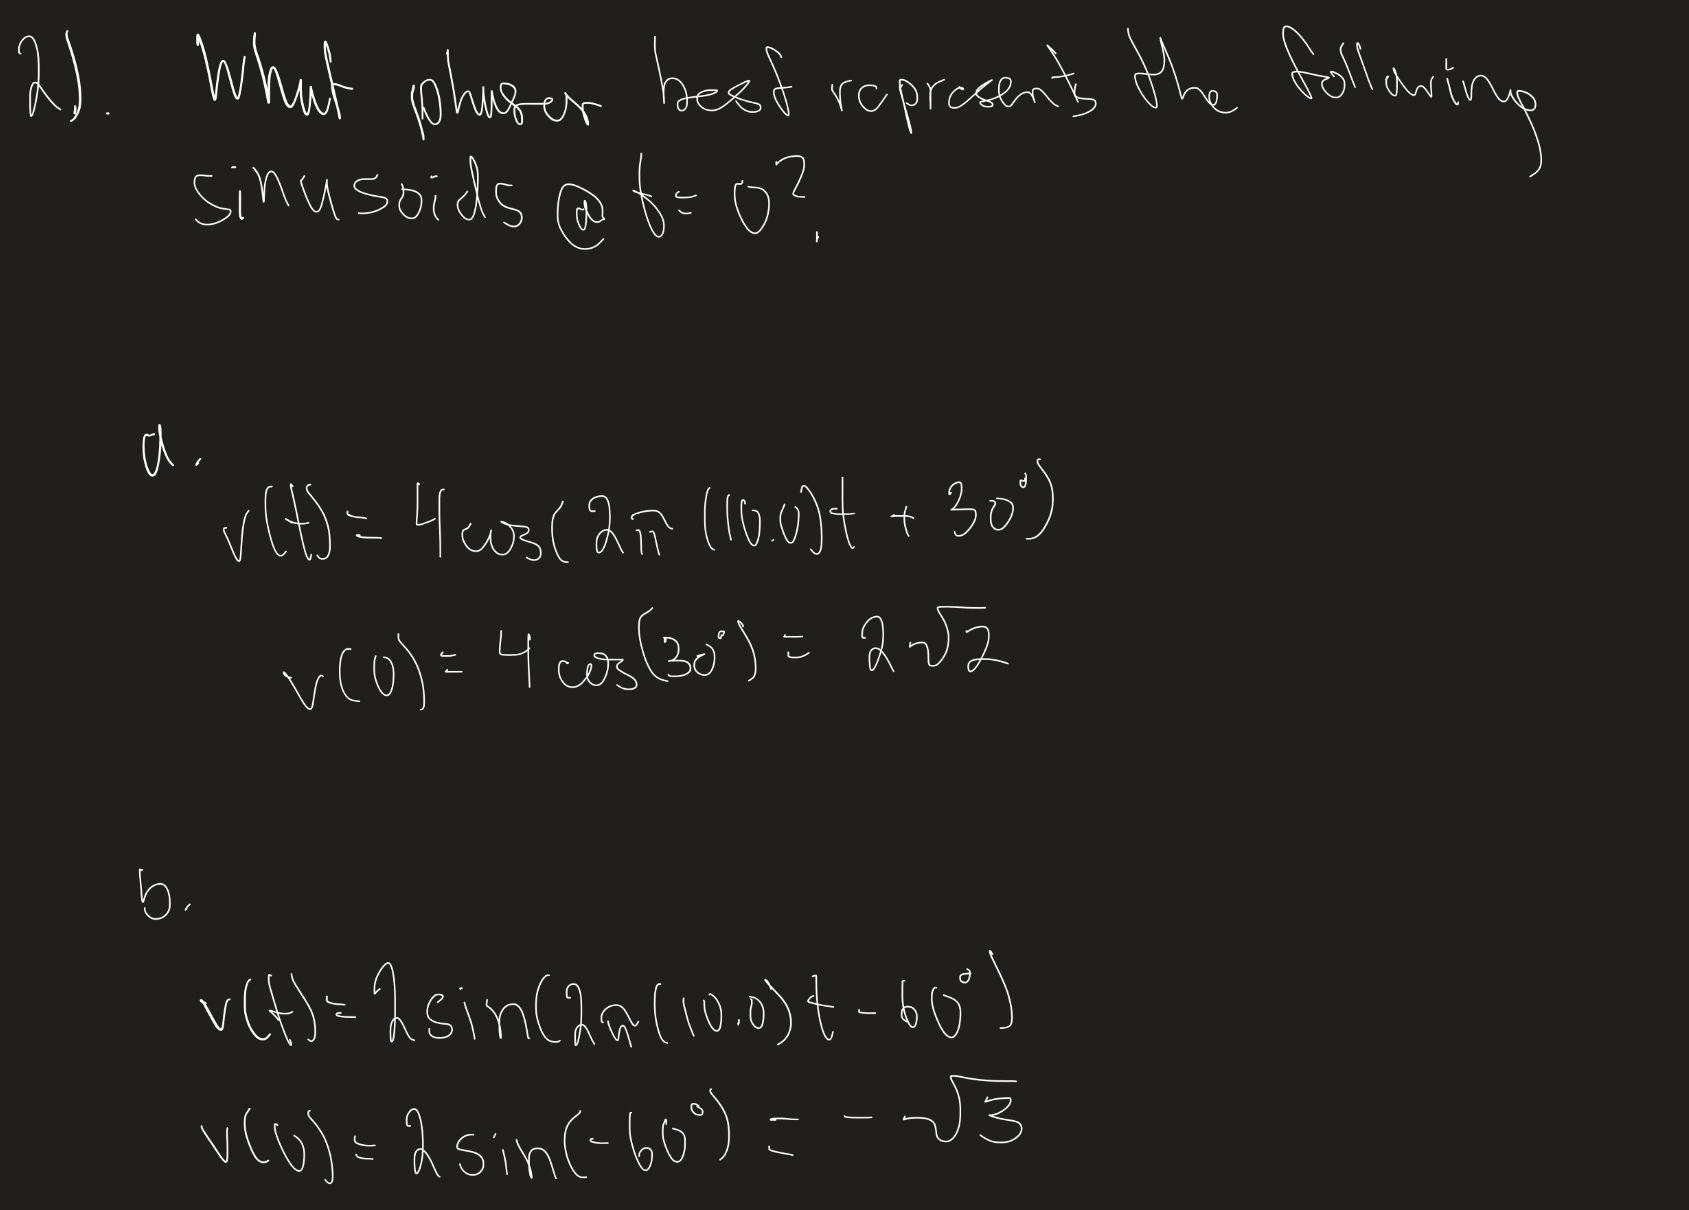 2). What phasor best represents the following
sinusoids @ t = 0?
a.
v(t) = 4 cos( 2π (10.0)t + 30°)
v(0) = 4 cos(30°) = 2√2
b.
v(t) = 2 sin(2π(10.0)t - 60°)
v(0) = 2 sin(-60°) = - √3